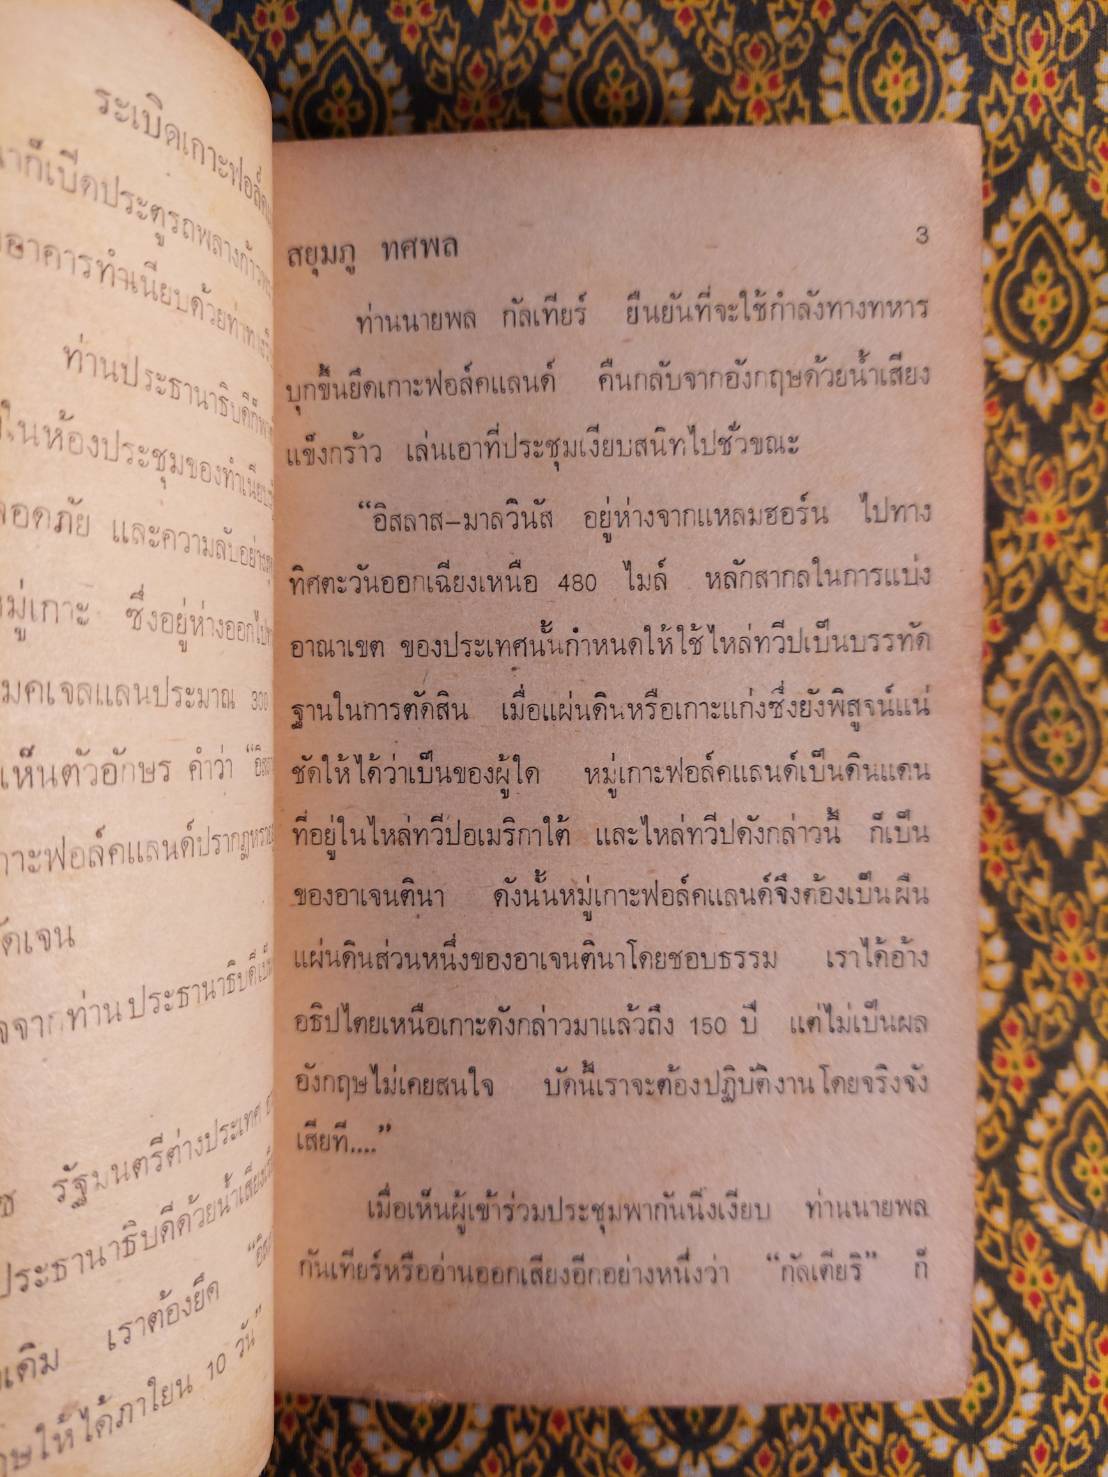 ระเบิดเกาะฟอล์ค
ก็เปิดประตูรถพลางก้าว
อาคารทำเนียบด้วยท่าทาง
ท่านประธานาธิบดีก็
ในห้องประชุมของทำเนียบ
ลอดภัย และความลับอย่าง
หมู่เกาะ ซึ่งอยู่ห่างออกไป
มคเจลแลนประมาณ 300
เห็นตัวอักษร คำว่า "อิส
เกาะฟอล์คแลนด์ปรากฏ
ัดเจน
จากท่านประธานาธิบดี
รัฐมนตรีต่างประเทศ
ประธานาธิบดีด้วยน้ำเสียง
เดิม เราต้องยึด
ให้ได้ภาใยน 10 วัน"
สยุมภู ทศพล 3
ท่านนายพล กัลเทียร์ ยืนยันที่จะใช้กำลังทางทหาร
บุกขึ้นยึดเกาะฟอล์คแลนด์ คืนกลับจากอังกฤษด้วยน้ำเสียง
แข็งกร้าว เล่นเอาที่ประชุมเงียบสนิทไปชั่วขณะ
"อิสลาส-มาลวินัส อยู่ห่างจากแหลมฮอร์น ไปทาง
ทิศตะวันออกเฉียงเหนือ 480 ไมล์ หลักสากลในการแบ่ง
อาณาเขต ของประเทศนั้นกำหนดให้ใช้ไหล่ทวีปเป็นบรรทัด
ฐานในการตัดสิน เมื่อแผ่นดินหรือเกาะแก่งซึ่งยังพิสูจน์แน่
ชัดให้ได้ว่าเป็นของผู้ใด หมู่เกาะฟอล์คแลนด์เป็นดินแดน
ที่อยู่ในไหล่ทวีปอเมริกาใต้ และไหล่ทวีปดังกล่าวนี้ ก็เป็น
ของอาเจนตินา ดังนั้นหมู่เกาะฟอล์คแลนด์จึงต้องเป็นผืน
แผ่นดินส่วนหนึ่งของอาเจนตินาโดยชอบธรรม เราได้อ้าง
อธิปไตยเหนือเกาะดังกล่าวมาแล้วถึง 150 ปี แต่ไม่เป็นผล
อังกฤษไม่เคยสนใจ บัดนี้เราจะต้องปฏิบัติงานโดยจริงจัง
เสียที...."
เมื่อเห็นผู้เข้าร่วมประชุมพากันนิ่งเงียบ ท่านนายพล
กันเทียร์หรืออ่านออกเสียงอีกอย่างหนึ่งว่า "กัลเตียริ" ก็